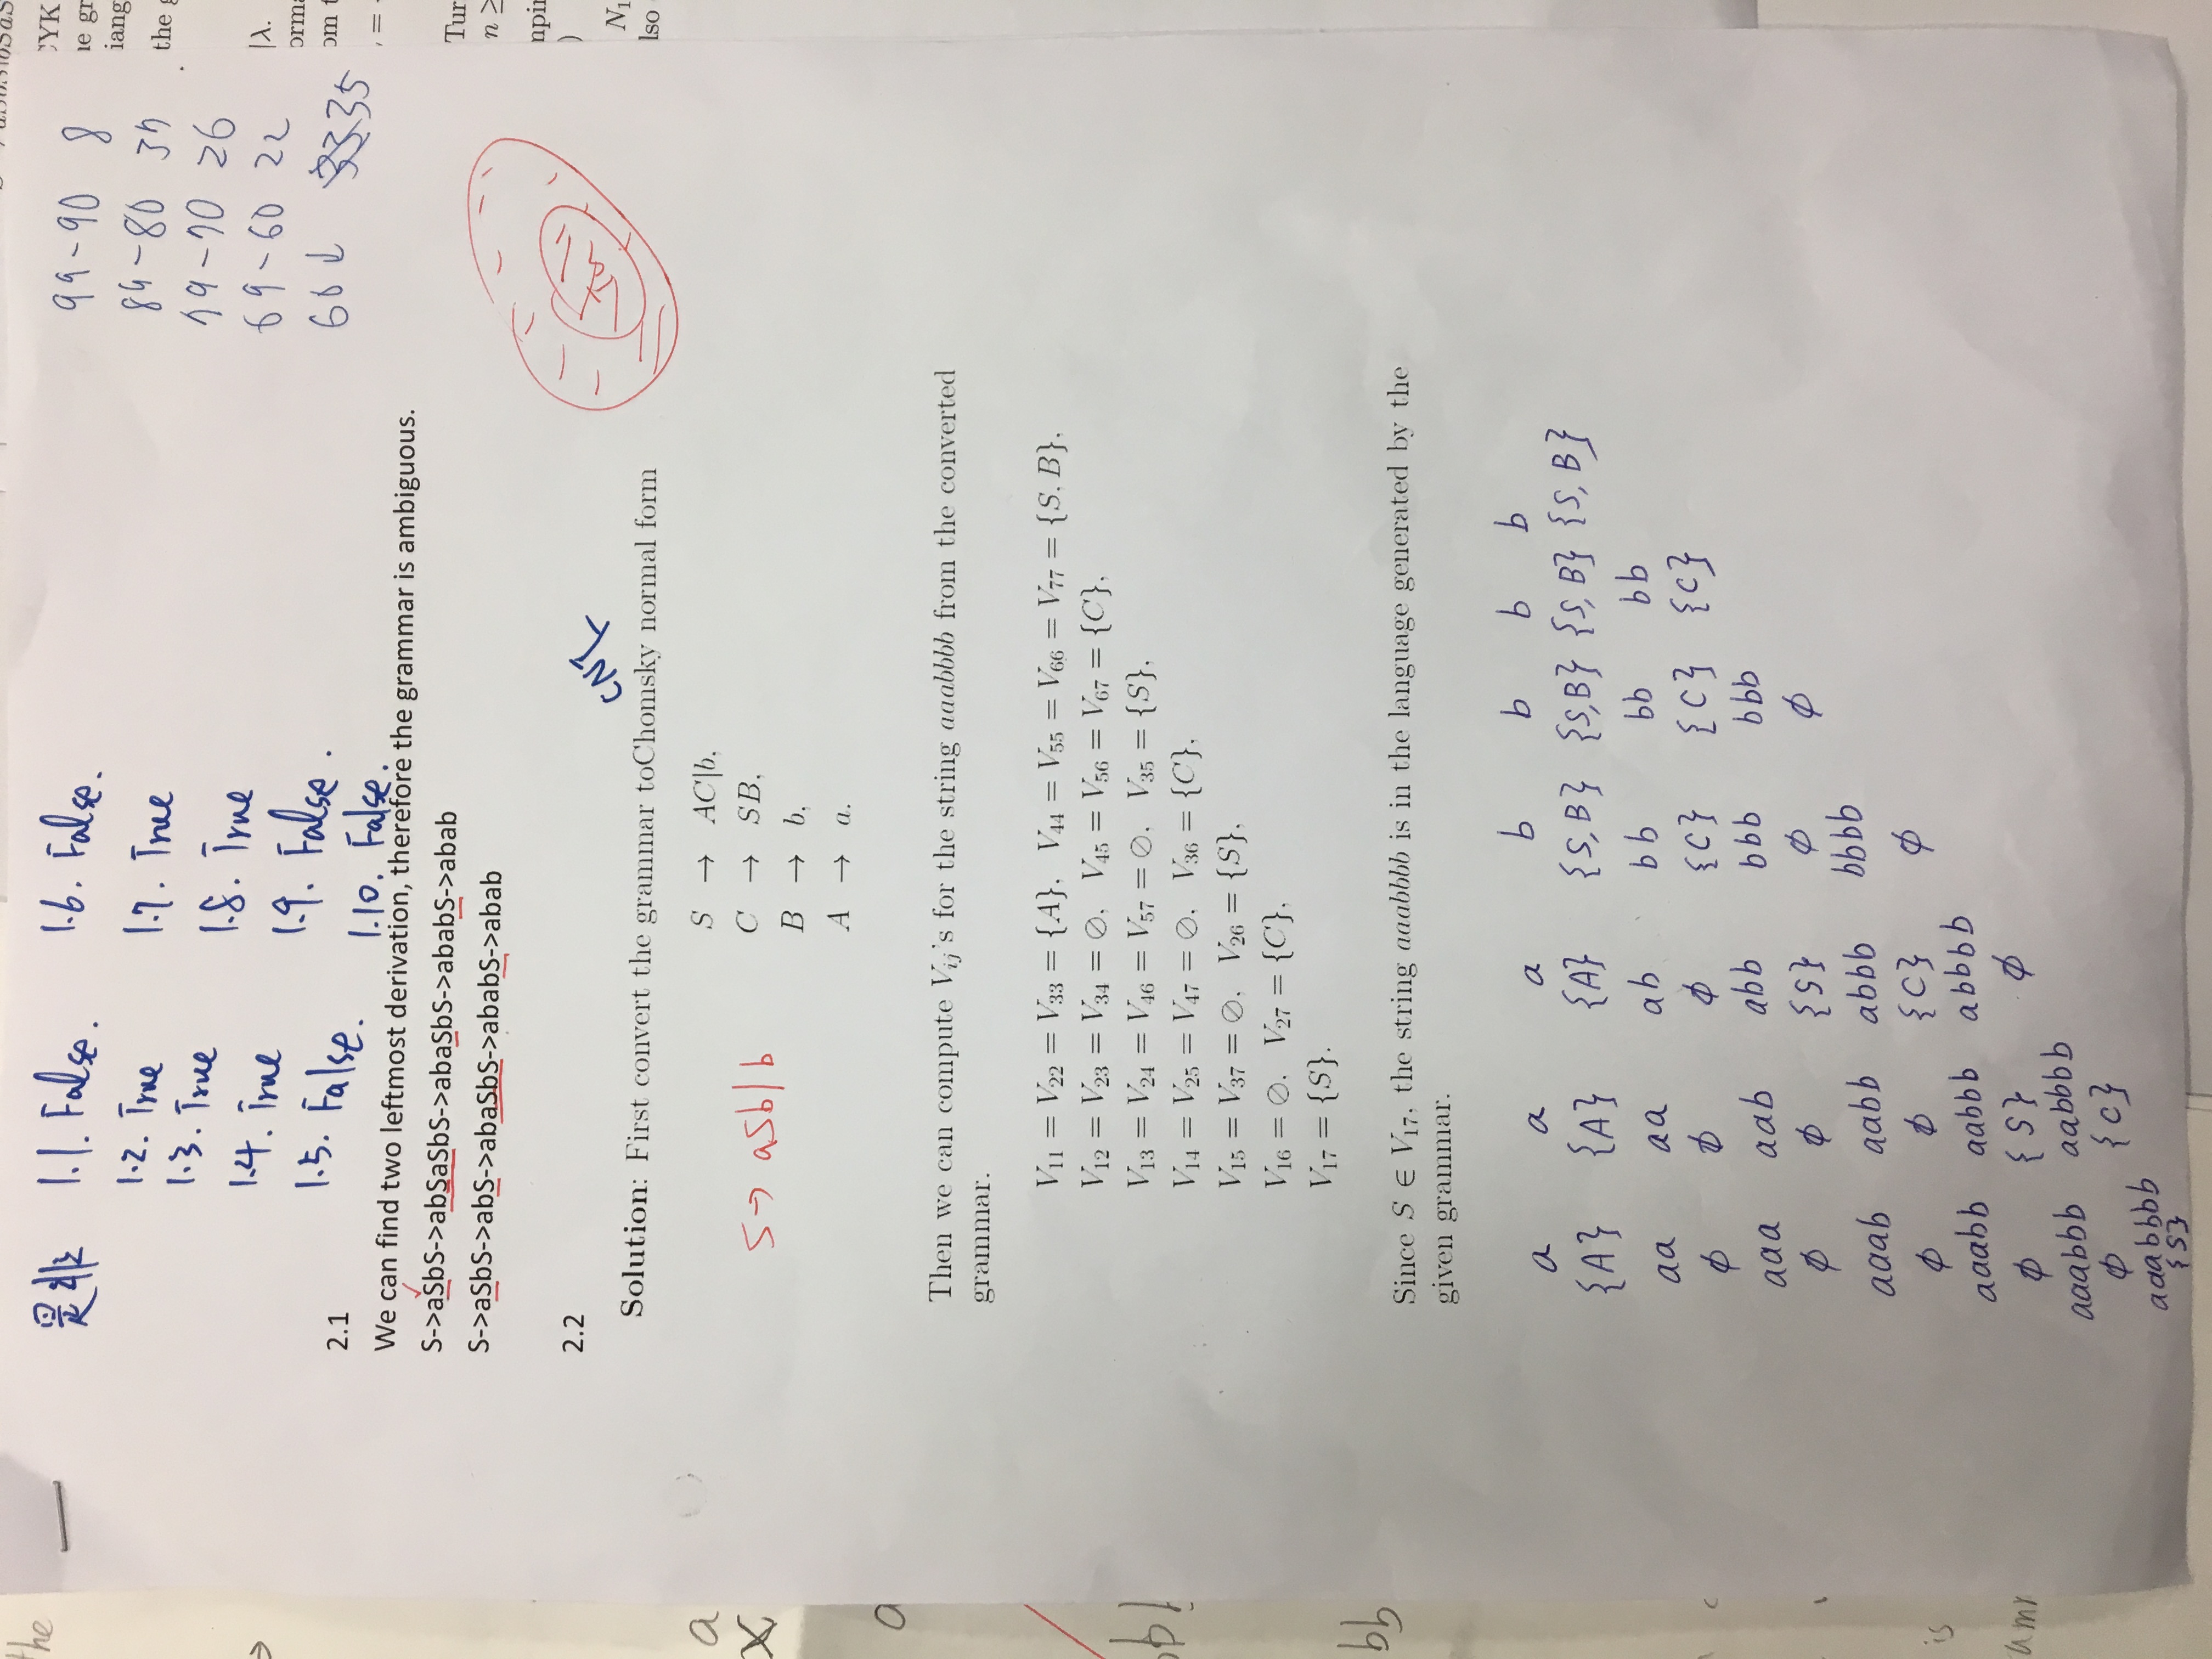 the
是非 1.1. False. 1.6. False.
1.2. True 1.7. True
1.3. True 1.8. True
1.4. True 1.9. False.
1.5. False. 1.10. False.
99-90 8
84-80 37
79-70 26
69-60 22
60↓ 35
CYK
the
|λ.
Tur
n ≥
N₁
2.1
We can find two leftmost derivation, therefore the grammar is ambiguous.
S->aSbS->abSaSbS->abaSbS->ababS->abab
S->aSbS->abS->abaSbS->ababS->abab
2.2
CNF
Solution: First convert the grammar toChomsky normal form
S → AC|b,
C → SB,
B → b,
A → a.
S→ aSb|b
Then we can compute Vij's for the string aaabbbb from the converted
grammar.
V₁₁ = V₂₂ = V₃₃ = {A}, V₄₄ = V₅₅ = V₆₆ = V₇₇ = {S, B},
V₁₂ = V₂₃ = V₃₄ = ∅, V₄₅ = V₅₆ = V₆₇ = {C},
V₁₃ = V₂₄ = V₄₆ = V₅₇ = ∅, V₃₅ = {S},
V₁₄ = V₂₅ = V₄₇ = ∅, V₃₆ = {C},
V₁₅ = V₃₇ = ∅, V₂₆ = {S},
V₁₆ = ∅, V₂₇ = {C},
V₁₇ = {S}.
Since S ∈ V₁₇, the string aaabbbb is in the language generated by the
given grammar.
a a a b b b b
{A} {A} {A} {S,B} {S,B} {S,B} {S,B}
aa aa ab bb bb bb
∅ ∅ ∅ {C} {C} {C}
aaa aab abb bbb bbb
∅ ∅ {S} ∅ ∅
aaab aabb abbb bbbb
∅ ∅ {C} ∅
aaabb aabbb abbbb
∅ {S} ∅
aaabbb aabbbb
∅ {C}
aaabbbb
{S}
a
x
a
bb
is